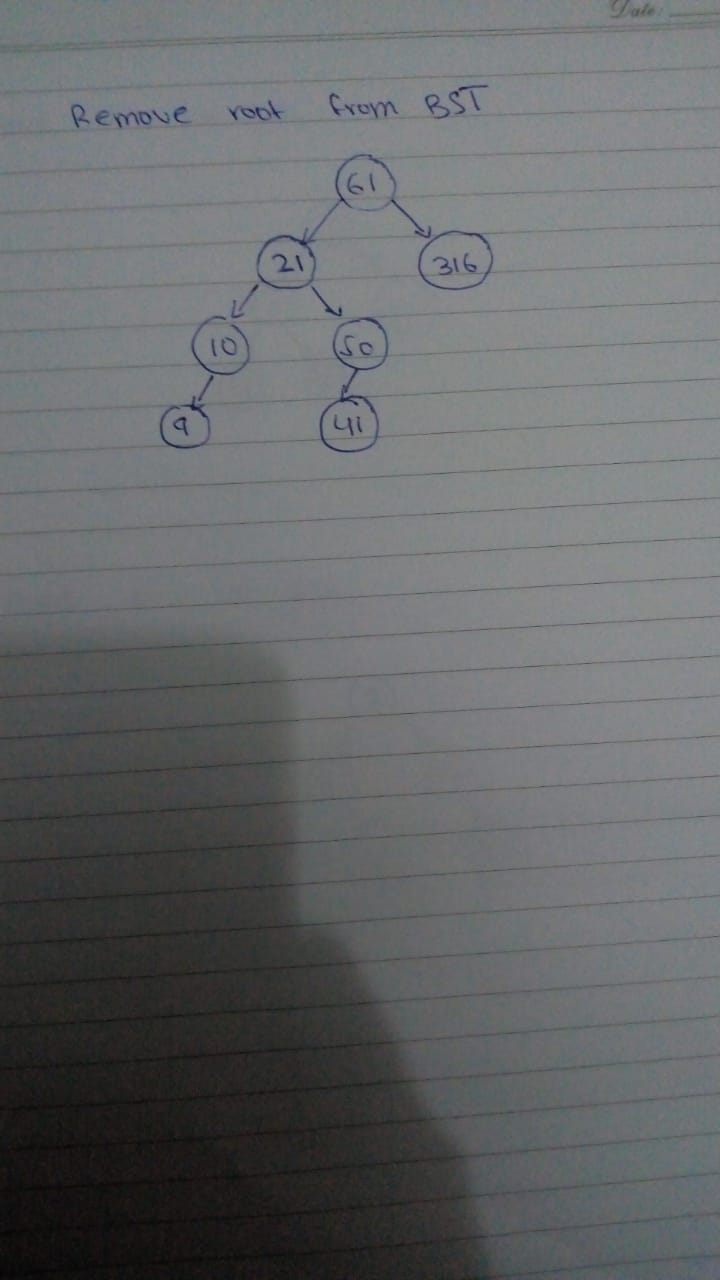 Date:
Remove root from BST
61
21 316
10 50
9 41